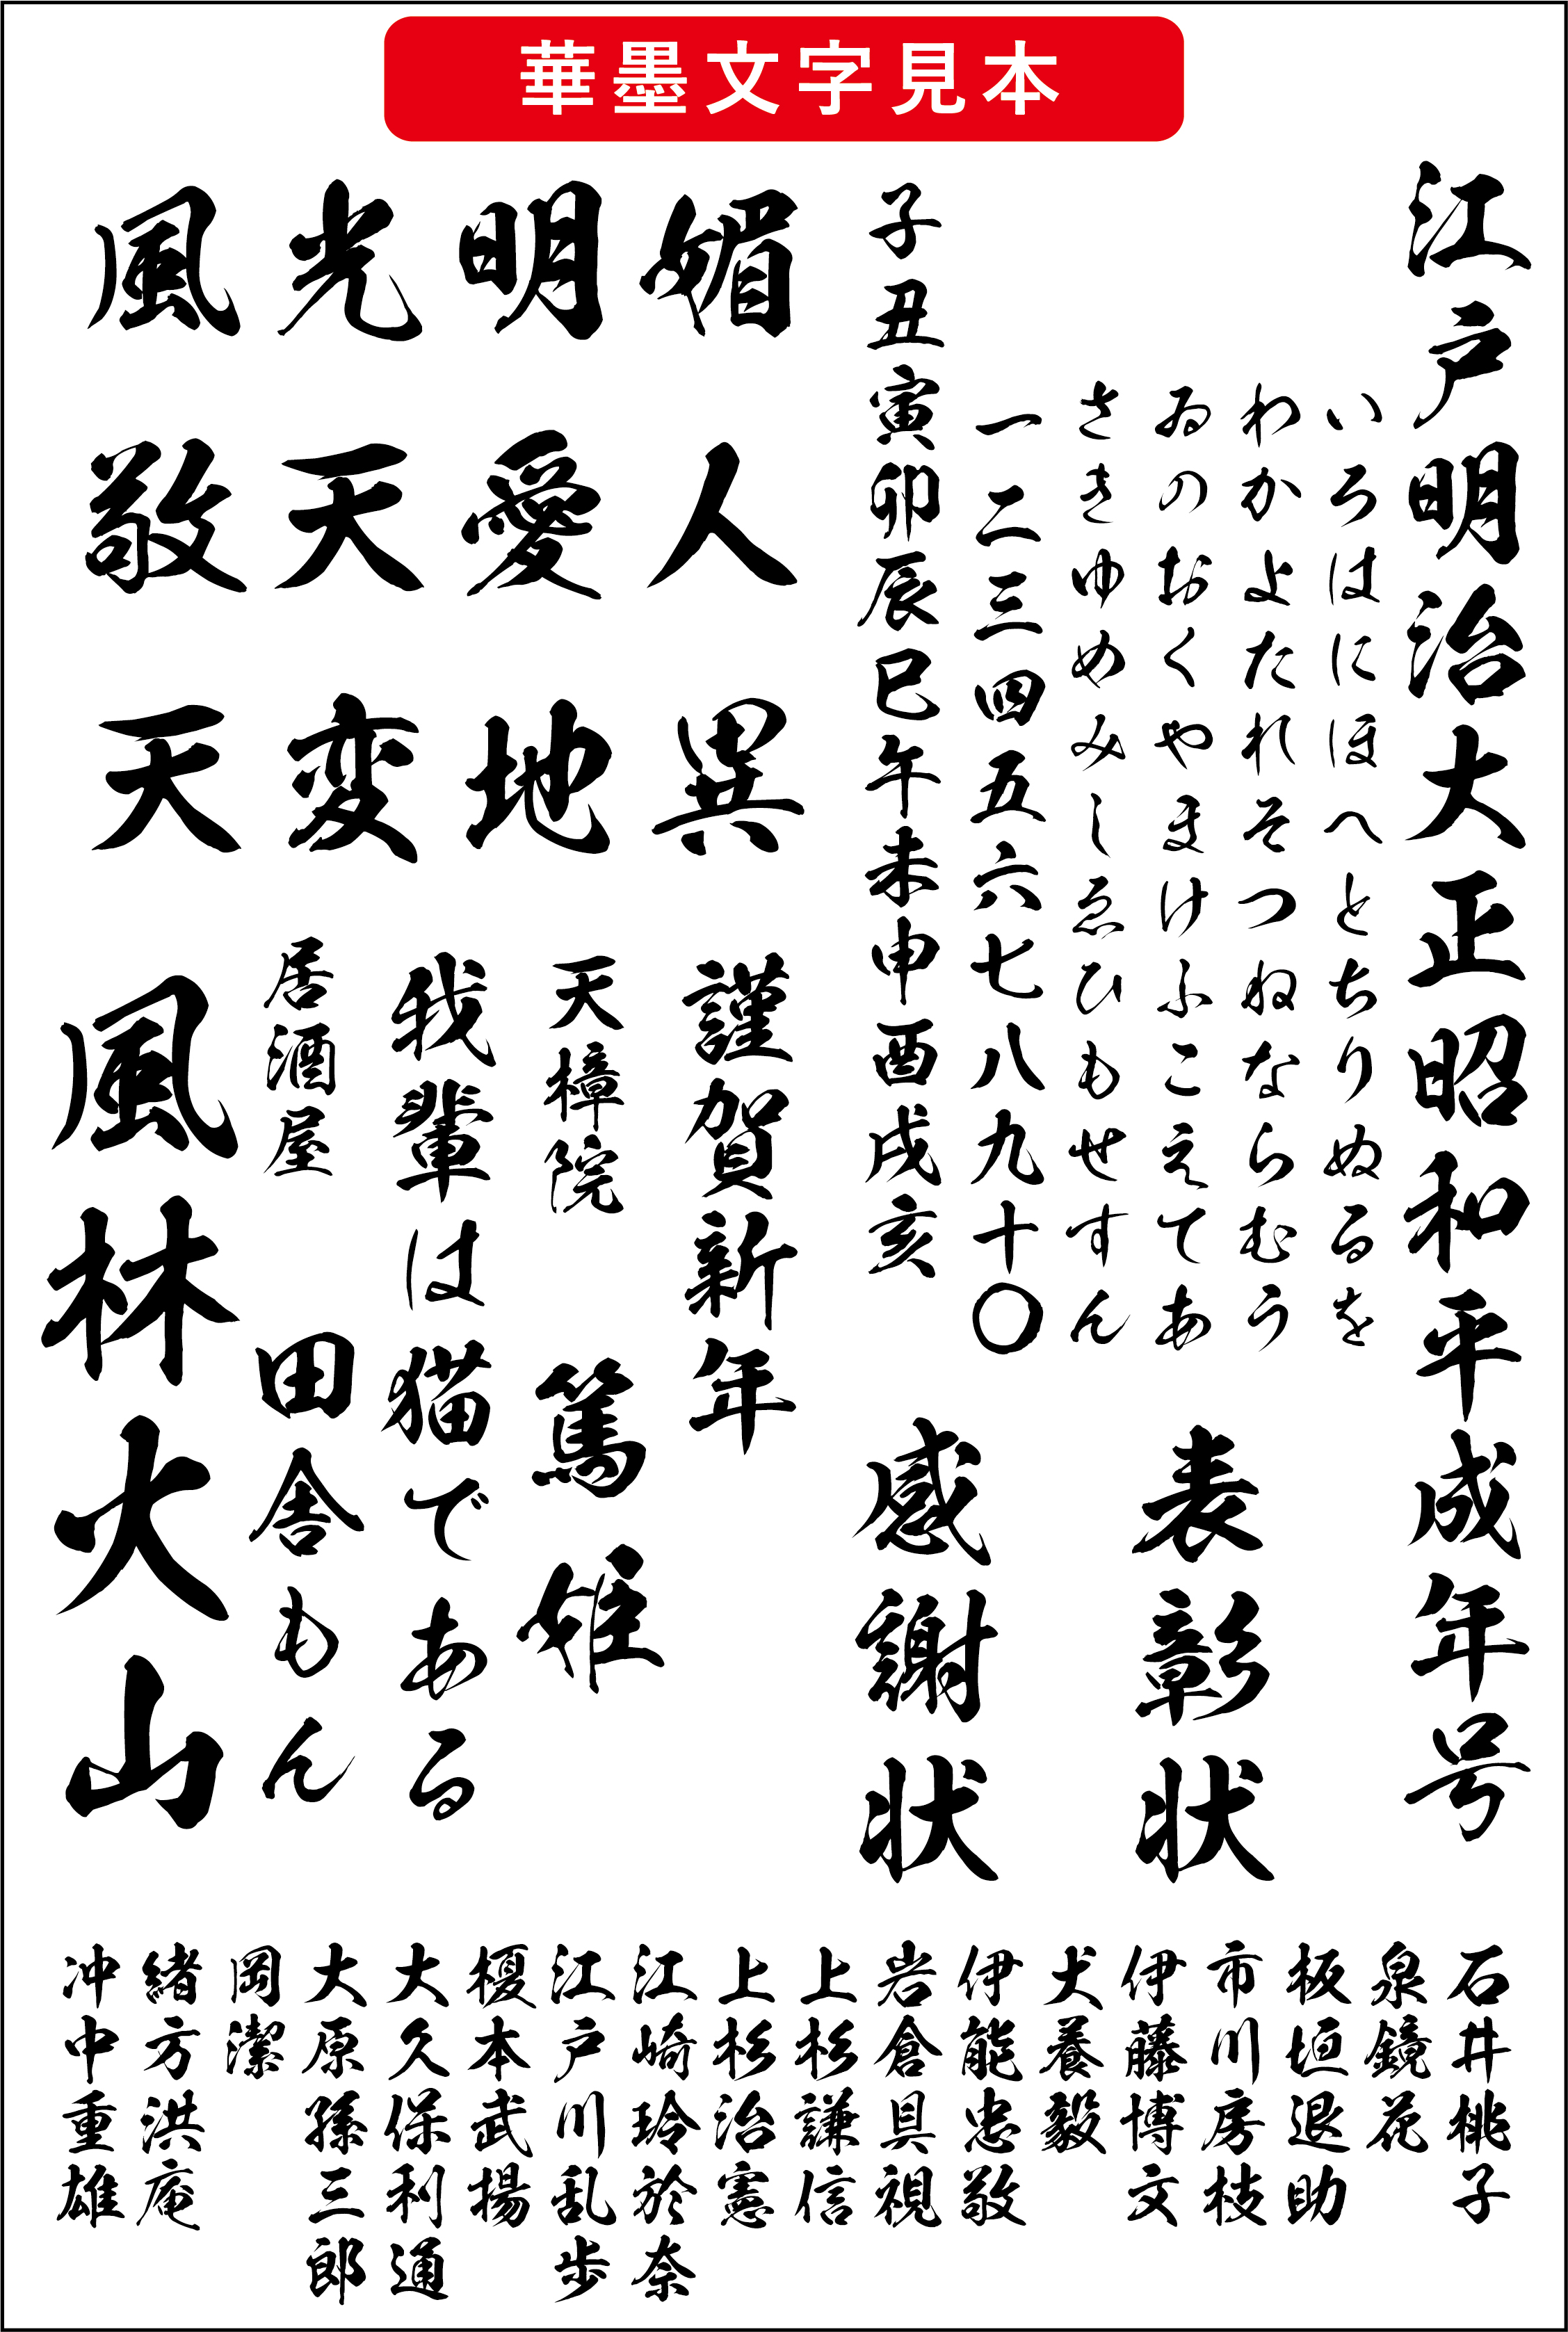 華墨文字見本
江戸明治大正昭和平成年号
いろはにほへとちりぬるを
わかよたれそつねならむう
ゐのおくやまけふこえてあ
さきゆめみしゑひもせすん
一二三四五六七八九十〇
子丑寅卯辰巳午未申酉戌亥
表彰状
感謝状
媚明光風
人愛天敬
異地変天
謹賀新年
天樟院
篤姫
我輩は猫である
居酒屋
田舎もん
風林火山
石井桃子
泉鏡花
板垣退助
市川房枝
伊藤博文
犬養毅
伊能忠敬
岩倉具視
上杉謙信
上杉治憲
江崎玲於奈
江戸川乱歩
榎本武揚
大久保利通
大原孫三郎
岡潔
緒方洪庵
冲中重雄